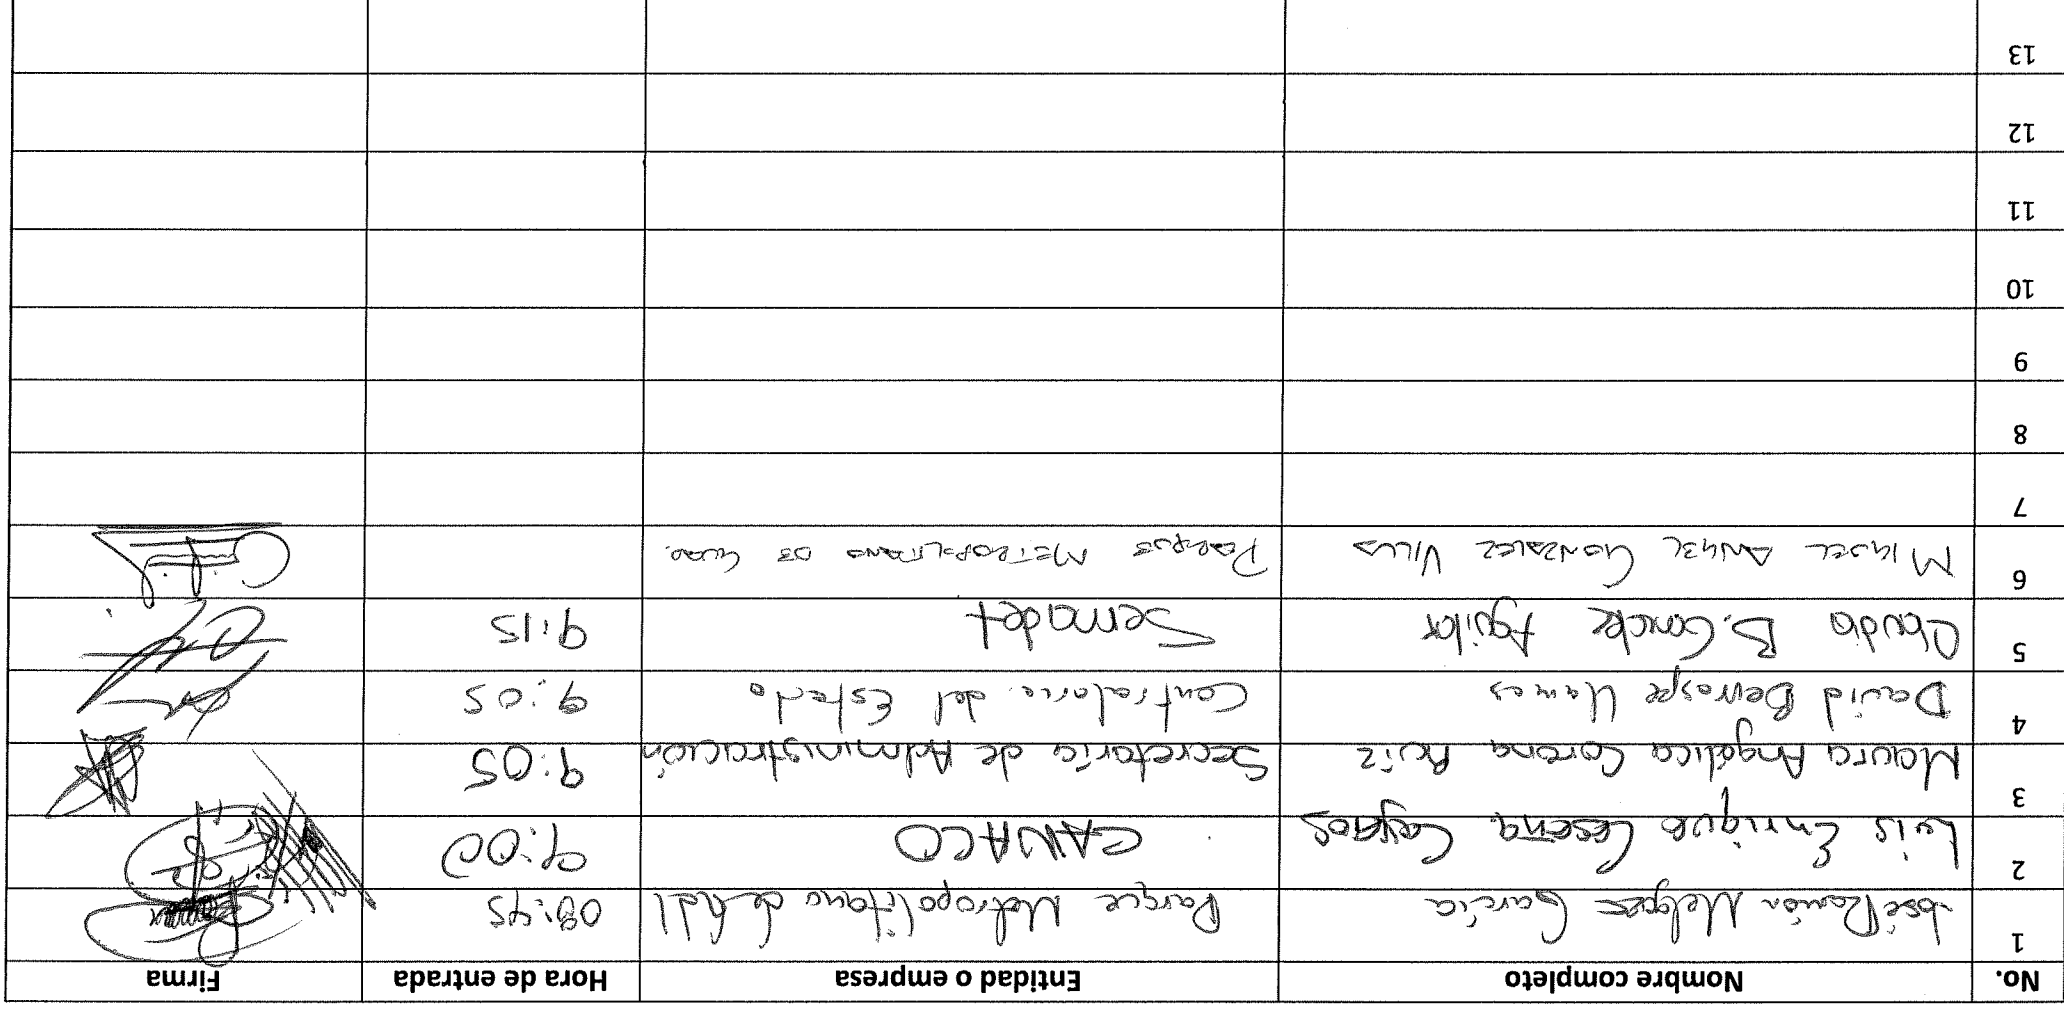 No. Nombre completo Entidad o empresa Hora de entrada Firma
1 José Ramón Melgoza García Parque Metropolitano de Gdl 08:45
2 Luis Enrique Cesena Cayeros CANACO 9:00
3 Maura Angélica Corona Ruíz Secretaría de Administración 9:05
4 David Berrospe Llamas Contraloria del Estado 9:05
5 Claudia B. Conde Aguilar Semadet 9:15
6 MIGUEL ANGEL GONZALEZ VILLA PARQUE METROPOLITANO DE GUAD.
7
8
9
10
11
12
13